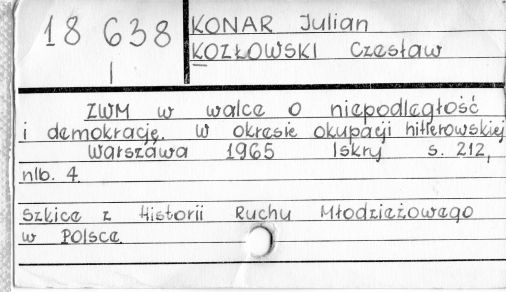 18 638
I
KONAR Julian
KOZŁOWSKI Czesław
ZWM w walce o niepodległość
i demokrację. w okresie okupacji hitlerowskiej
Warszawa 1965 Iskry s. 212,
nlb. 4.
Szkice z Historii Ruchu Młodzieżowego
w Polsce.